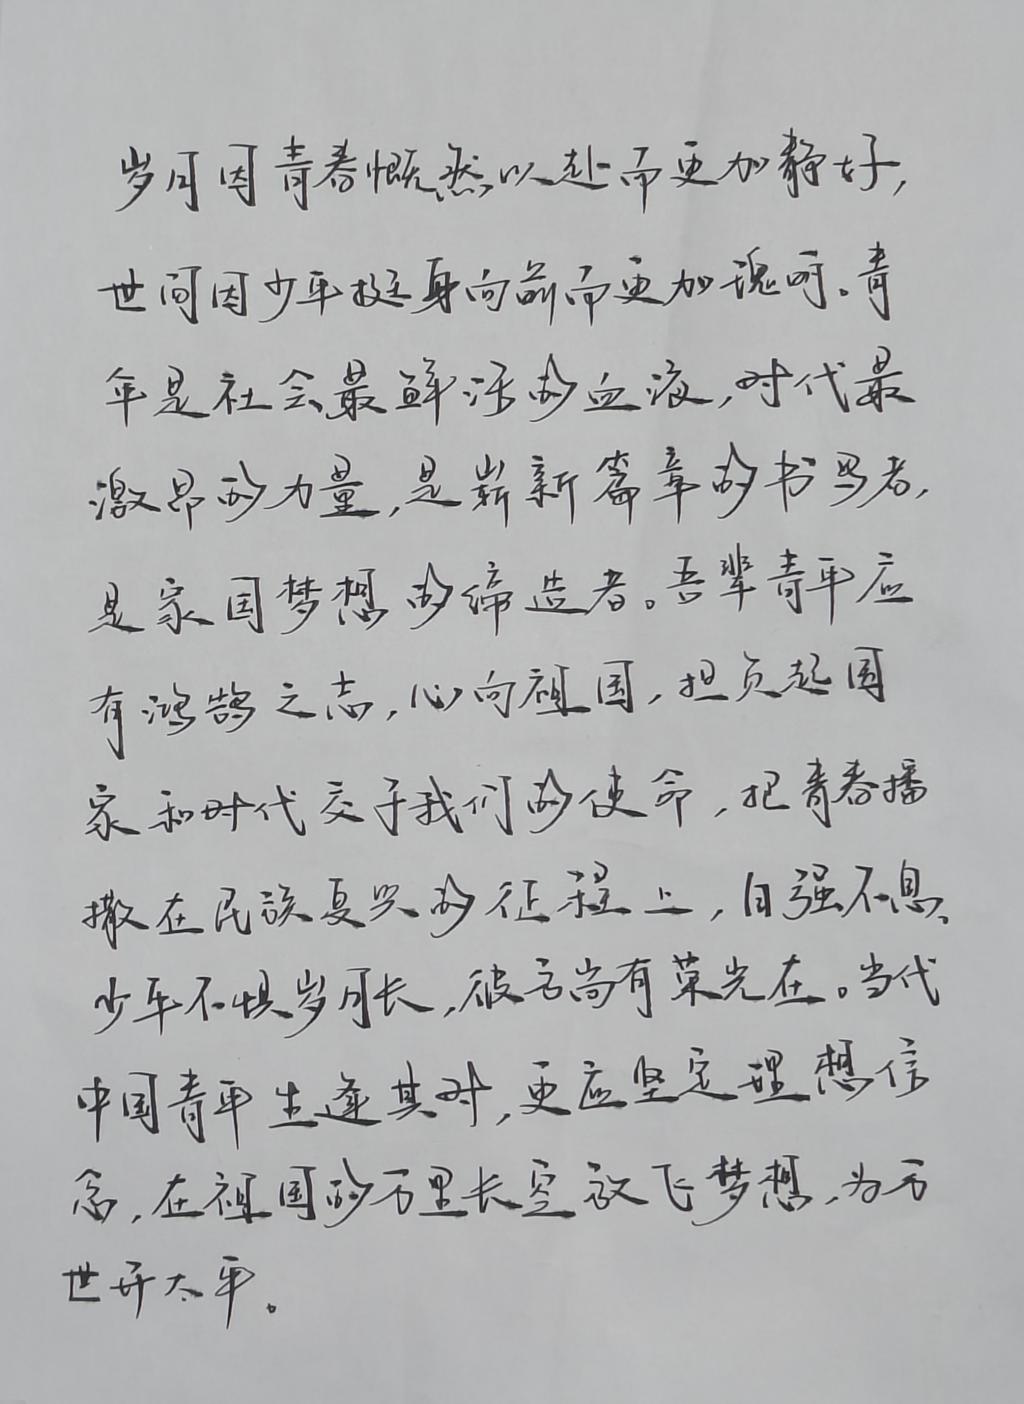 岁月因青春慨然以赴而更加静好，
世间因少年挺身向前而更加瑰丽。青
年是社会最鲜活的血液，时代最
激昂的力量，是崭新篇章的书写者，
是家国梦想的缔造者。吾辈青年应
有鸿鹄之志，心向祖国，担负起国
家和时代交予我们的使命，把青春播
撒在民族复兴的征程上，自强不息、
少年不惧岁月长，彼方尚有荣光在。当代
中国青年生逢其时，更应坚定理想信
念，在祖国的万里长空放飞梦想，为万
世开太平。